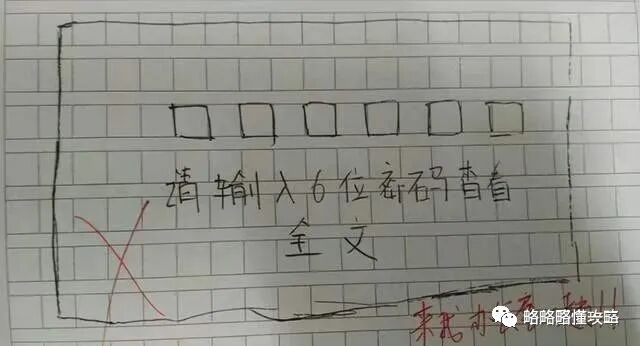 请输入6位密码查看
全文
来我办 趟!!
略略略懂攻略